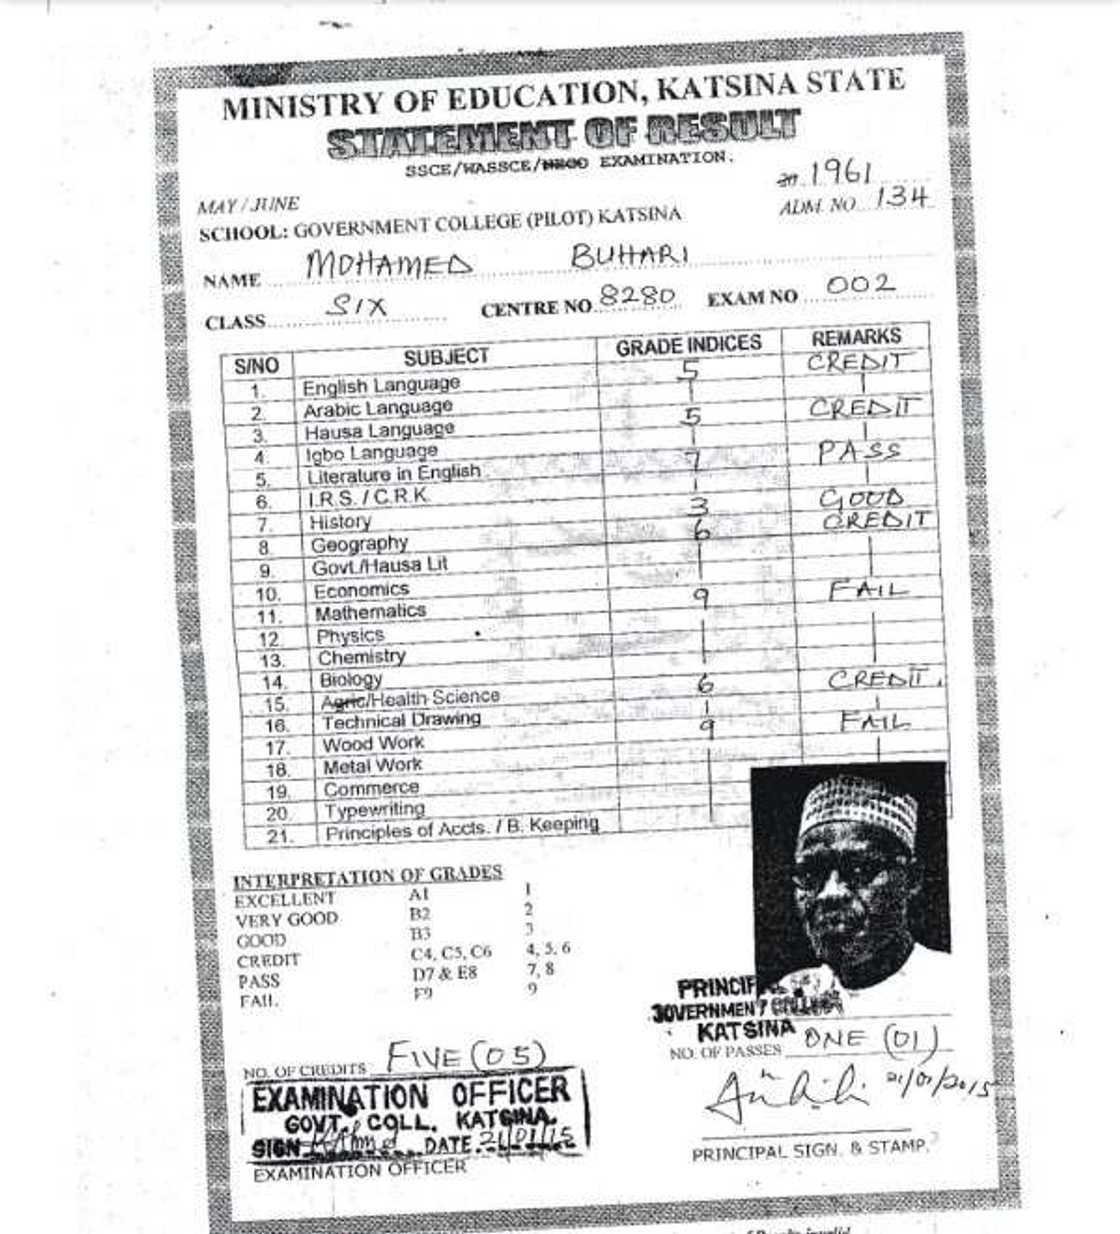 MINISTRY OF EDUCATION, KATSINA STATE
STATEMENT OF RESULT
SSCE/WASSCE/NECO EXAMINATION.
MAY / JUNE 20 1961
ADM. NO. 134
SCHOOL: GOVERNMENT COLLEGE (PILOT) KATSINA
NAME MOHAMED BUHARI
CLASS SIX CENTRE NO 8280 EXAM NO 002
S/NO SUBJECT GRADE INDICES REMARKS
1. English Language 5 CREDIT
2. Arabic Language
3. Hausa Language 5 CREDIT
4. Igbo Language
5. Literature in English 7 PASS
6. I.R.S. / C.R.K
7. History 3 GOOD
8. Geography 6 CREDIT
9. Govt./Hausa Lit
10. Economics
11. Mathematics 9 FAIL
12. Physics
13. Chemistry
14. Biology
15. Agric/Health Science 6 CREDIT.
16. Technical Drawing
17. Wood Work 9 FAIL
18. Metal Work
19. Commerce
20. Typewriting
21. Principles of Accts. / B. Keeping
INTERPRETATION OF GRADES
EXCELLENT A1 1
VERY GOOD B2 2
GOOD B3 3
CREDIT C4, C5, C6 4, 5, 6
PASS D7 & E8 7, 8
FAIL F9 9
PRINCIPAL
GOVERNMENT COLLEGE
KATSINA
NO. OF CREDITS FIVE (05)
NO. OF PASSES ONE (01)
EXAMINATION OFFICER
GOVT. COLL. KATSINA.
SIGN DATE 21/01/15
EXAMINATION OFFICER
21/01/2015
PRINCIPAL SIGN. & STAMP.